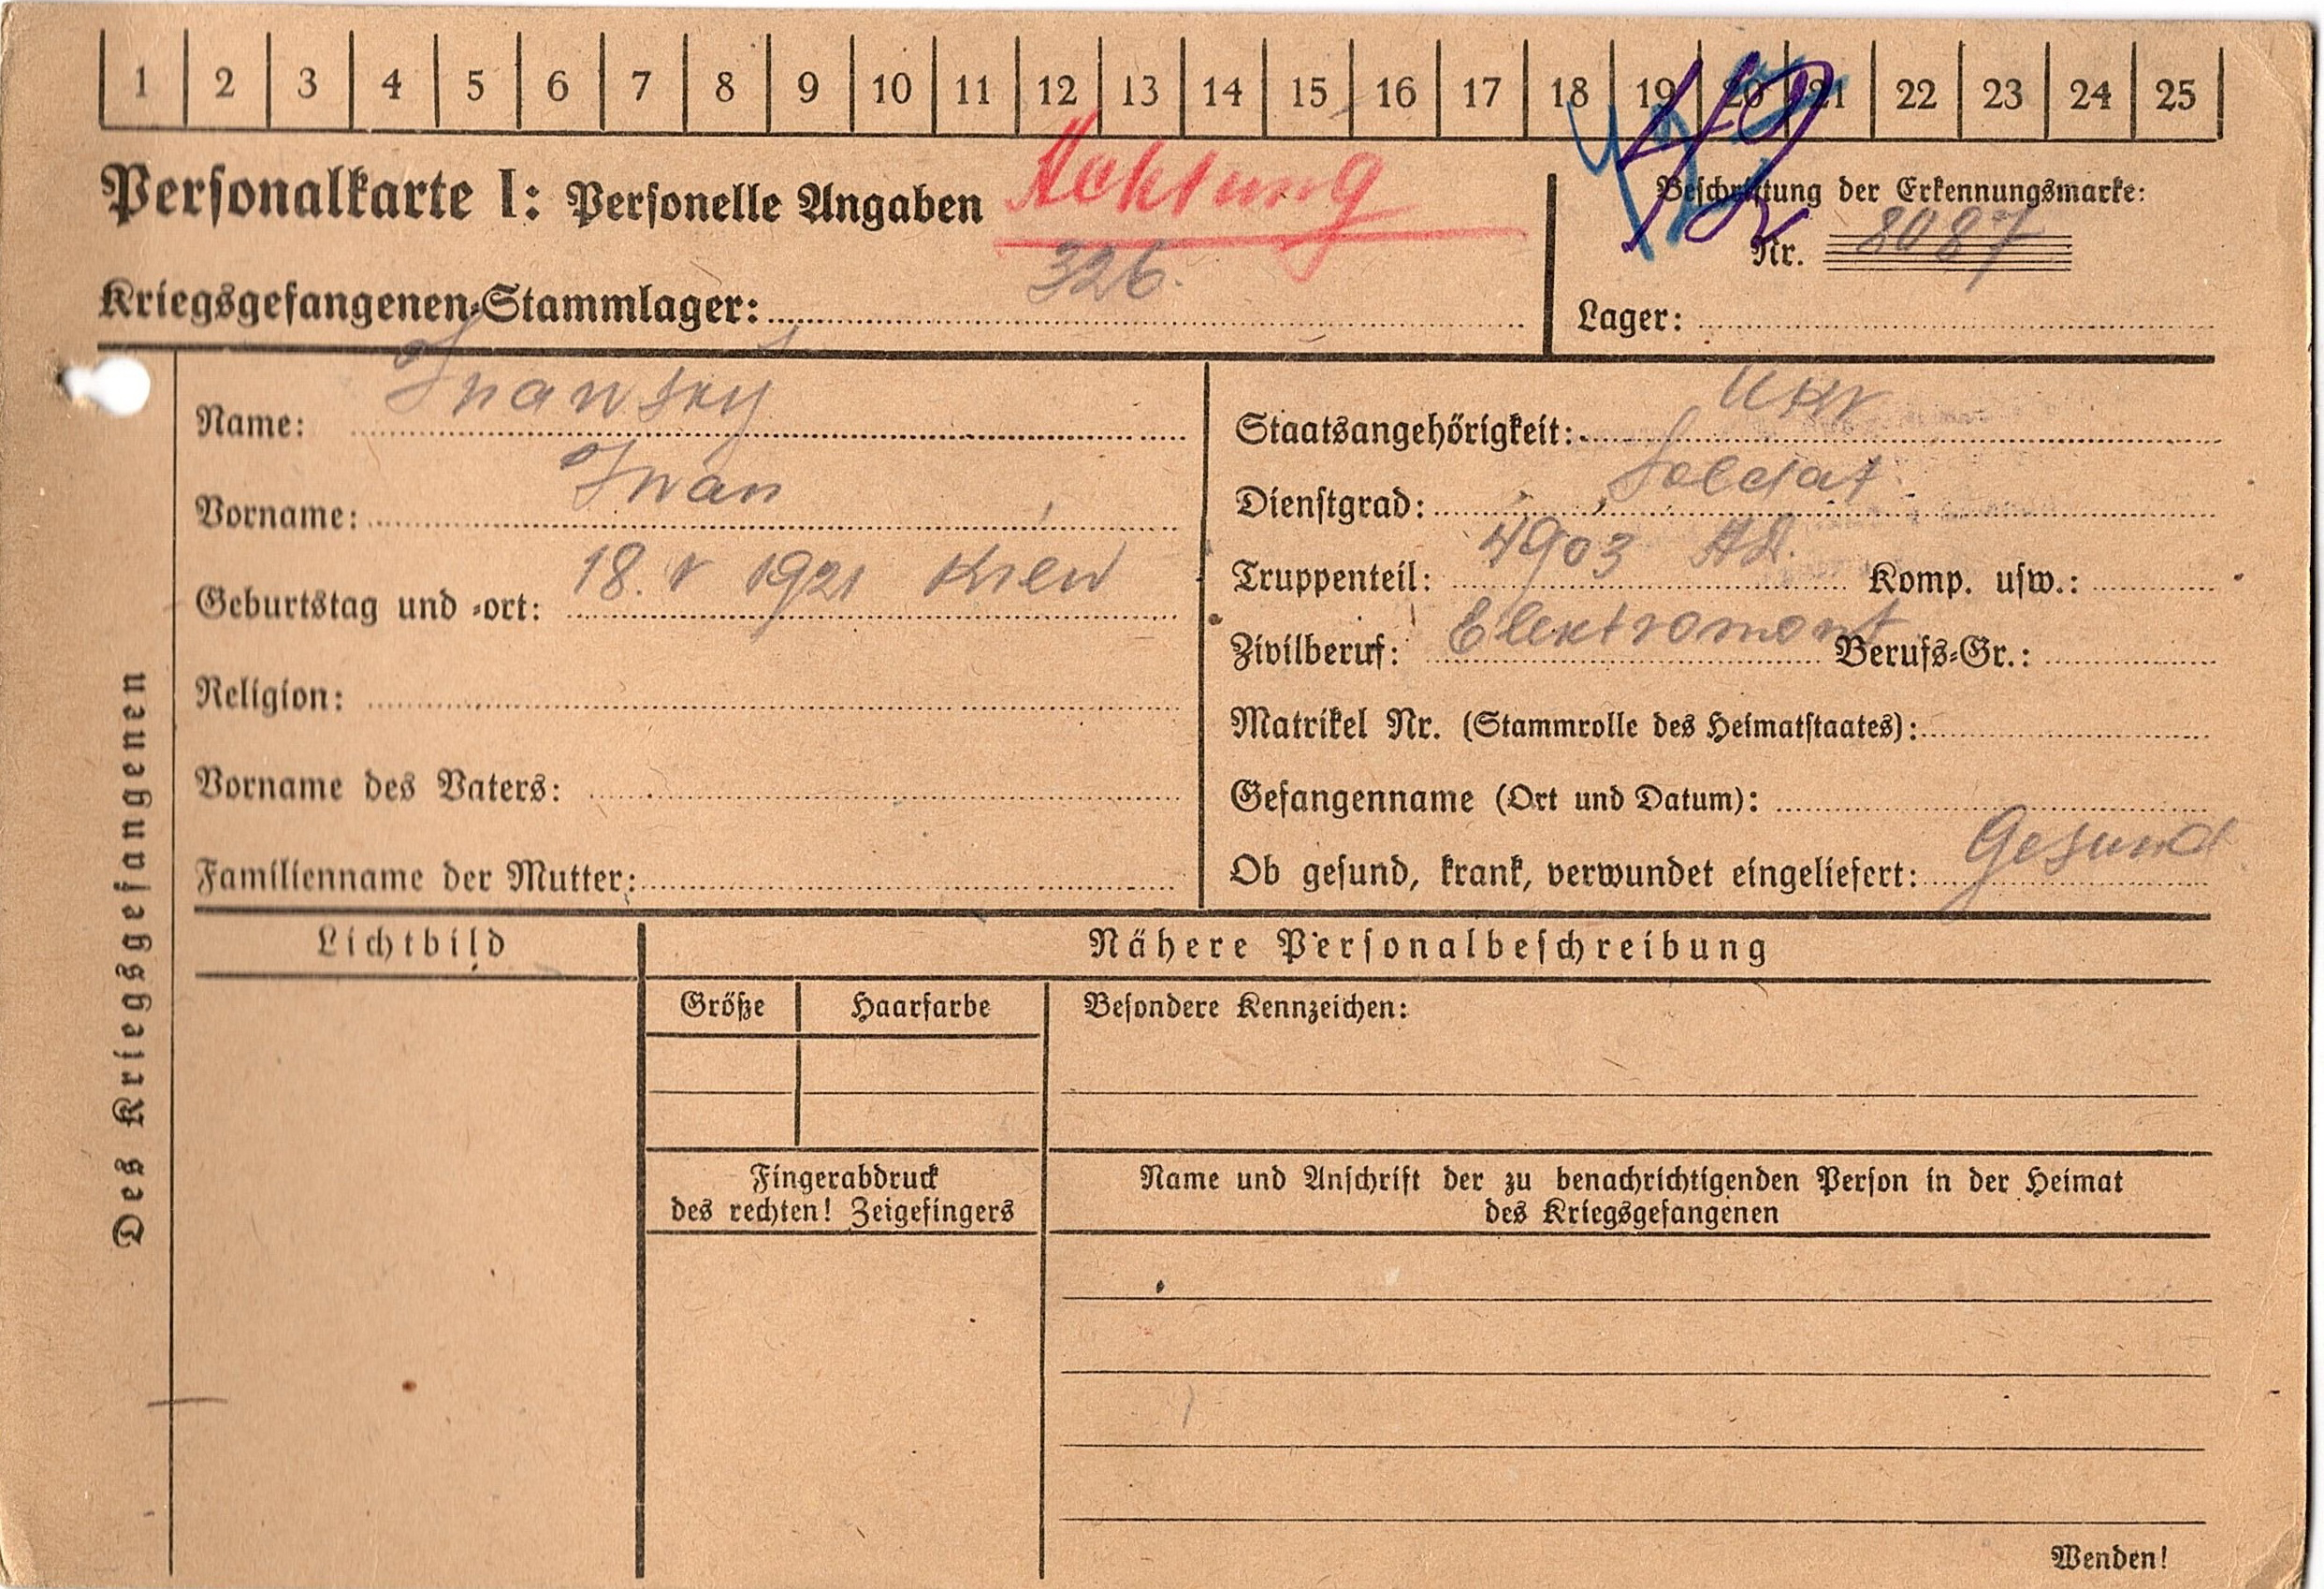 1 2 3 4 5 6 7 8 9 10 11 12 13 14 15 16 17 18 19 20 21 22 23 24 25
Personalkarte I: Personelle Angaben Achtung
Beschriftung der Erkennungsmarke:
Nr. 8087
Kriegsgefangenen-Stammlager: 326.
Lager:
Des Kriegsgefangenen
Name: Iwansky
Vorname: Iwan
Geburtstag und -ort: 18. V 1921 Kiew
Religion:
Vorname des Vaters:
Familienname der Mutter:
Staatsangehörigkeit: Ukr
Dienstgrad: Soldat
Truppenteil: 4903 Komp. usw.:
Zivilberuf: Elektromont Berufs-Gr.:
Matrikel Nr. (Stammrolle des Heimatstaates):
Gefangenname (Ort und Datum):
Ob gesund, krank, verwundet eingeliefert: Gesund
Lichtbild
Nähere Personalbeschreibung
Größe Haarfarbe Besondere Kennzeichen:
Fingerabdruck
des rechten! Zeigefingers
Name und Anschrift der zu benachrichtigenden Person in der Heimat
des Kriegsgefangenen
Wenden!